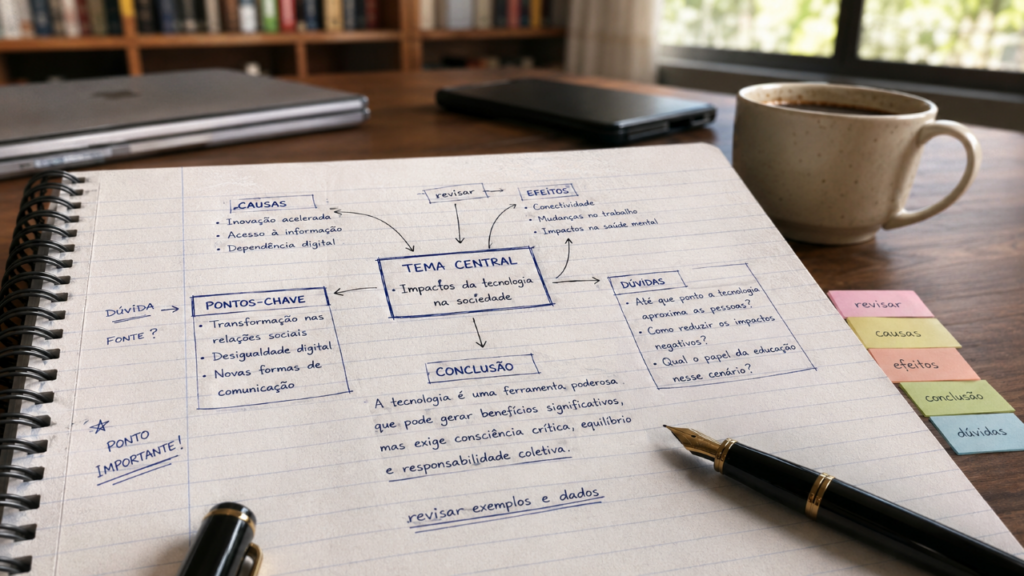 CAUSAS
• Inovação acelerada
• Acesso à informação
• Dependência digital
revisar
EFEITOS
• Conectividade
• Mudanças no trabalho
• Impactos na saúde mental
TEMA CENTRAL
• Impactos da tecnologia
na sociedade
DÚVIDA
FONTE?
PONTOS-CHAVE
• Transformação nas
relações sociais
• Desigualdade digital
• Novas formas de
comunicação
DÚVIDAS
• Até que ponto a tecnologia
aproxima as pessoas?
• Como reduzir os impactos
negativos?
• Qual o papel da educação
nesse cenário?
CONCLUSÃO
A tecnologia é uma ferramenta poderosa
que pode gerar benefícios significativos,
mas exige consciência crítica, equilíbrio
e responsabilidade coletiva.
PONTO
IMPORTANTE!
revisar exemplos e dados
revisar
causas
efeitos
conclusão
dúvidas